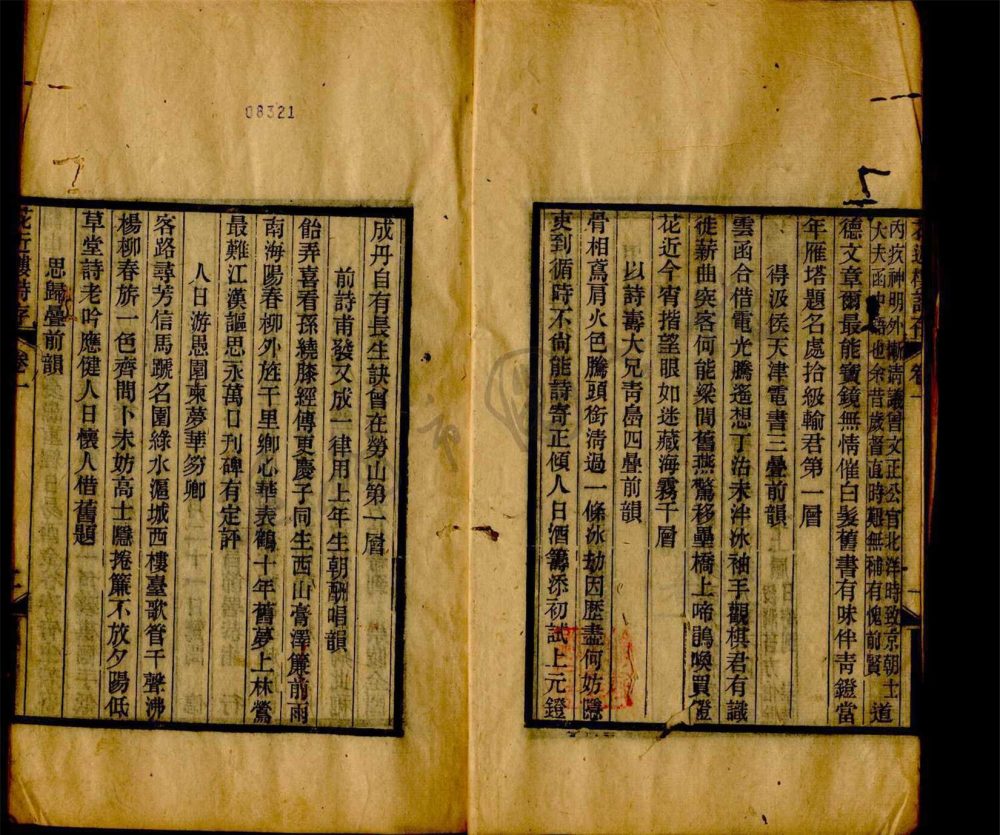 丙疚神明外慚清議曾文正公官北洋時致京朝士
大夫函中語也余昔歲督直時艱無補有愧前賢
道德文章爾最能寶鏡無情催白髮舊書有味伴青鐙當
年雁塔題名處拾級輸君第一層
得汲侯天津電書三疊前韻
雲函合借電光騰遙想丁沽未泮冰袖手觀棋君有識
徙薪曲突客何能梁間舊燕驚移壘橋上啼鵑喚買燈
花近今宵揩望眼如迷藏海霧千層
以詩壽大兄靑島四疊前韻
骨相鳶肩火色騰頭銜淸過一條冰劫因歷盡何妨隱
吏到循時不尙能詩寄正傾人日酒籌添初試上元鐙
08321
成丹自有長生訣曾在勞山第一層
前詩甫發又成一律用上年生朝酬唱韻
飴弄喜看孫繞膝經傳更慶子同生西山膏澤簾前雨
南海陽春柳外旌千里鄕心華表鶴十年舊夢上林鶯
最難江漢謳思永萬口刊碑有定評
人日游愚園柬夢華笏卿
客路尋芳信馬蹏名園綠水滬城西樓臺歌管千聲沸
楊柳春旂一色齊間卜未妨高士隱捲簾不放夕陽低
草堂詩老吟應健人日懷人借舊題
思歸疊前韻
花近樓詩存
卷一